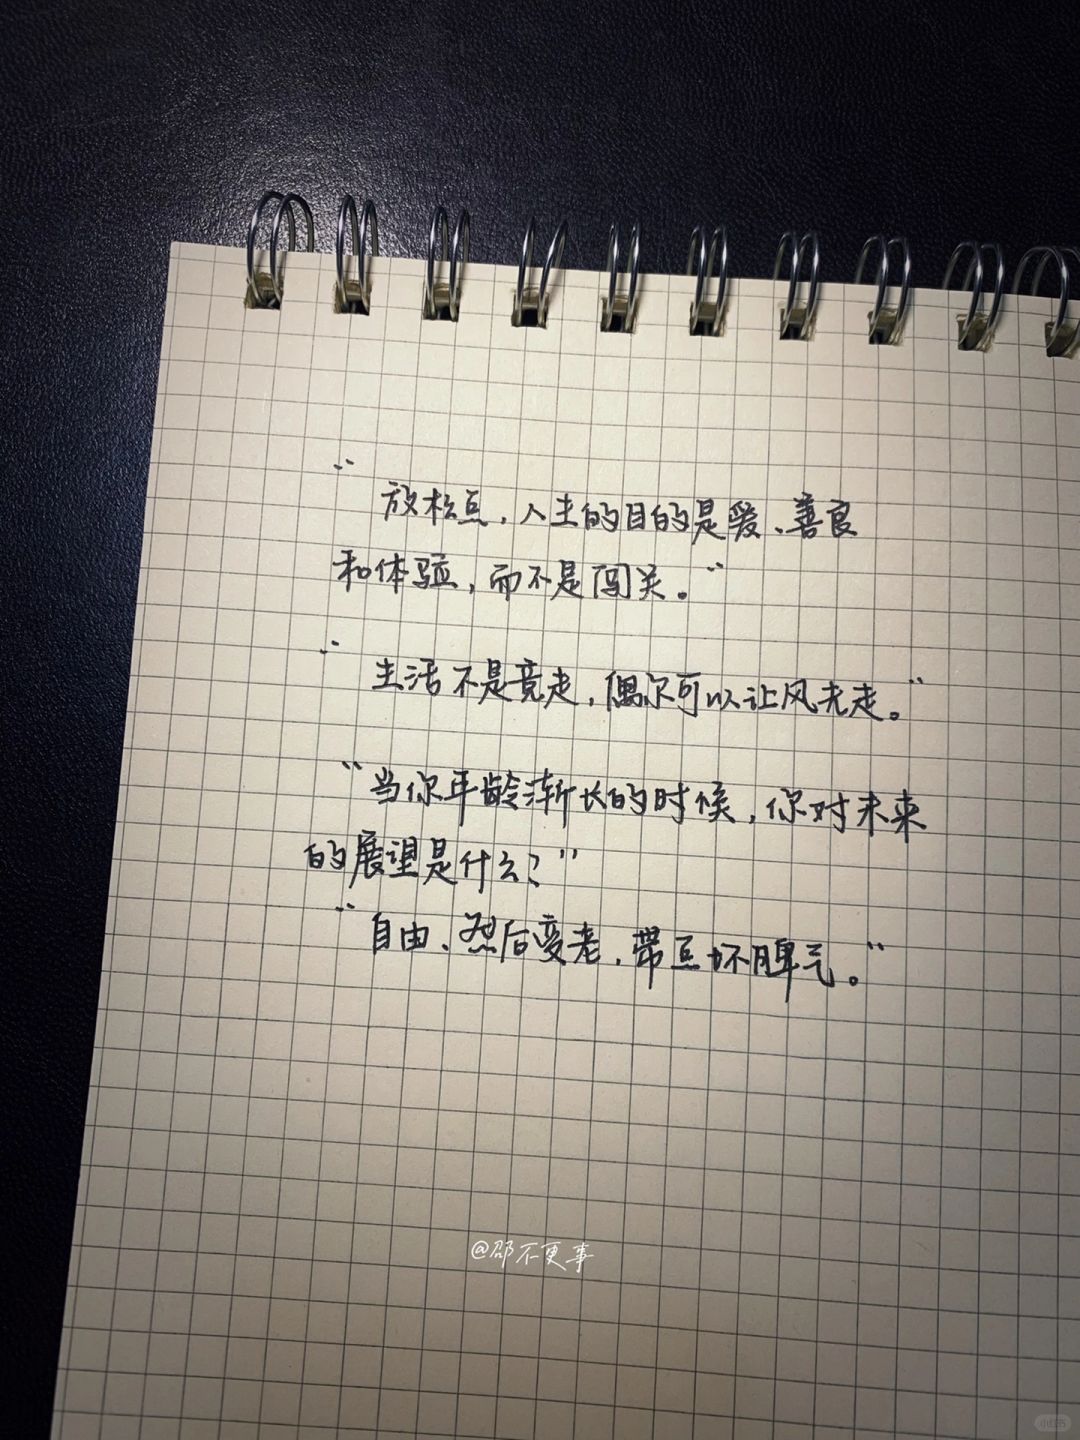 “放松点,人生的目的是爱、善良
和体验,而不是闯关。”
“生活不是竞走,偶尔可以让风先走。”
“当你年龄渐长的时候,你对未来
的展望是什么?”
“自由、然后变老,带点坏脾气。”
@邵不更事
小红书